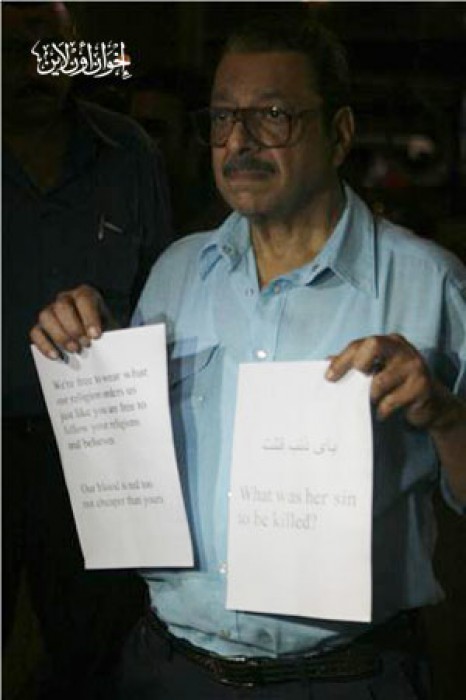 إخوان أون لاين
We're free to wear what
our religion orders us
just like you are free to
follow your religions
and believes
Our blood is red too
not cheaper than yours
بأى ذنب قتلت
What was her sin
to be killed?